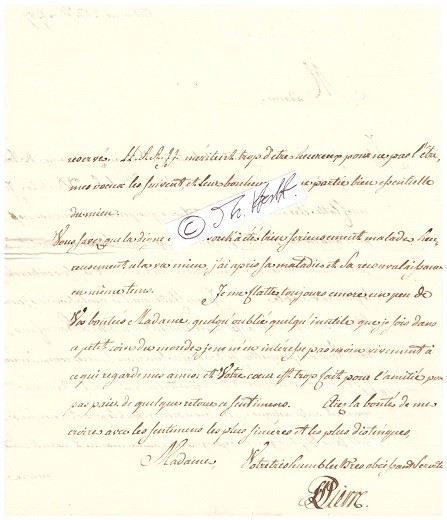 reservé. LL.A.A.JJ. méritent trop d'etre heureux pour ne pas l'être,
mes voeux les suivent et leur bonheur partie bien essentielle
du mien.
Vous savez que la digne a été bien serieusement malade heu-
reusement elle va mieu, j'ai apris sa maladie et sa reconvalessance
en même tems. Je me flatte toujours encore un peu de
Vos bontées Madame, quelqu'oublié quelqu'inutile que je sois dans
ce petit coin du monde, je ne m'interesse pas moin vivement à
ce qui regarde mes amis et Votre coeur est trop fait pour l'amitié pour
pas païer de quelque retour ce sentiment. Aiez la bonté de me
croire avec les sentimens les plus sinceres et les plus distingués,
Madame, Votre tres humble et tres obeissand Servite
© Th. Vortk.